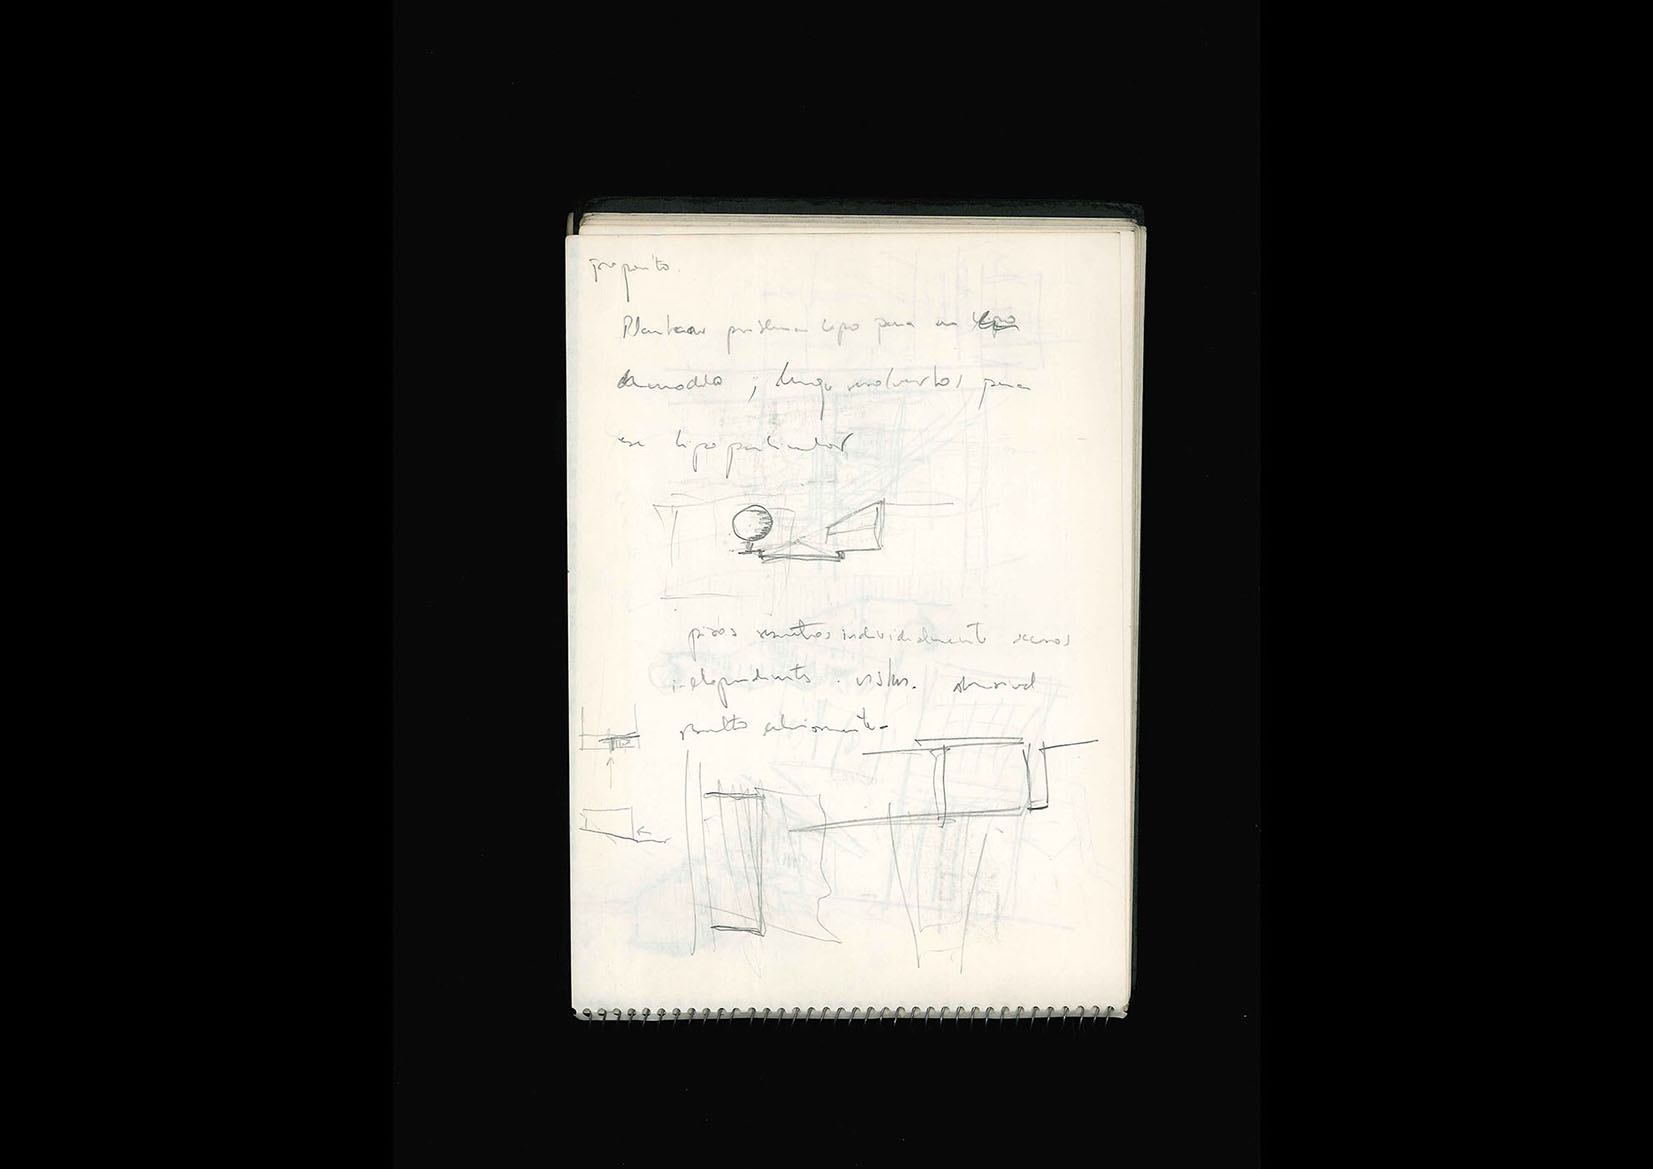 proposito.
Plantear problema tipo para un tipo
de modelo ; luego resolverlos para
ese tipo particular
pisos resueltos individualmente accesos
independientes . vistas.
resuelto